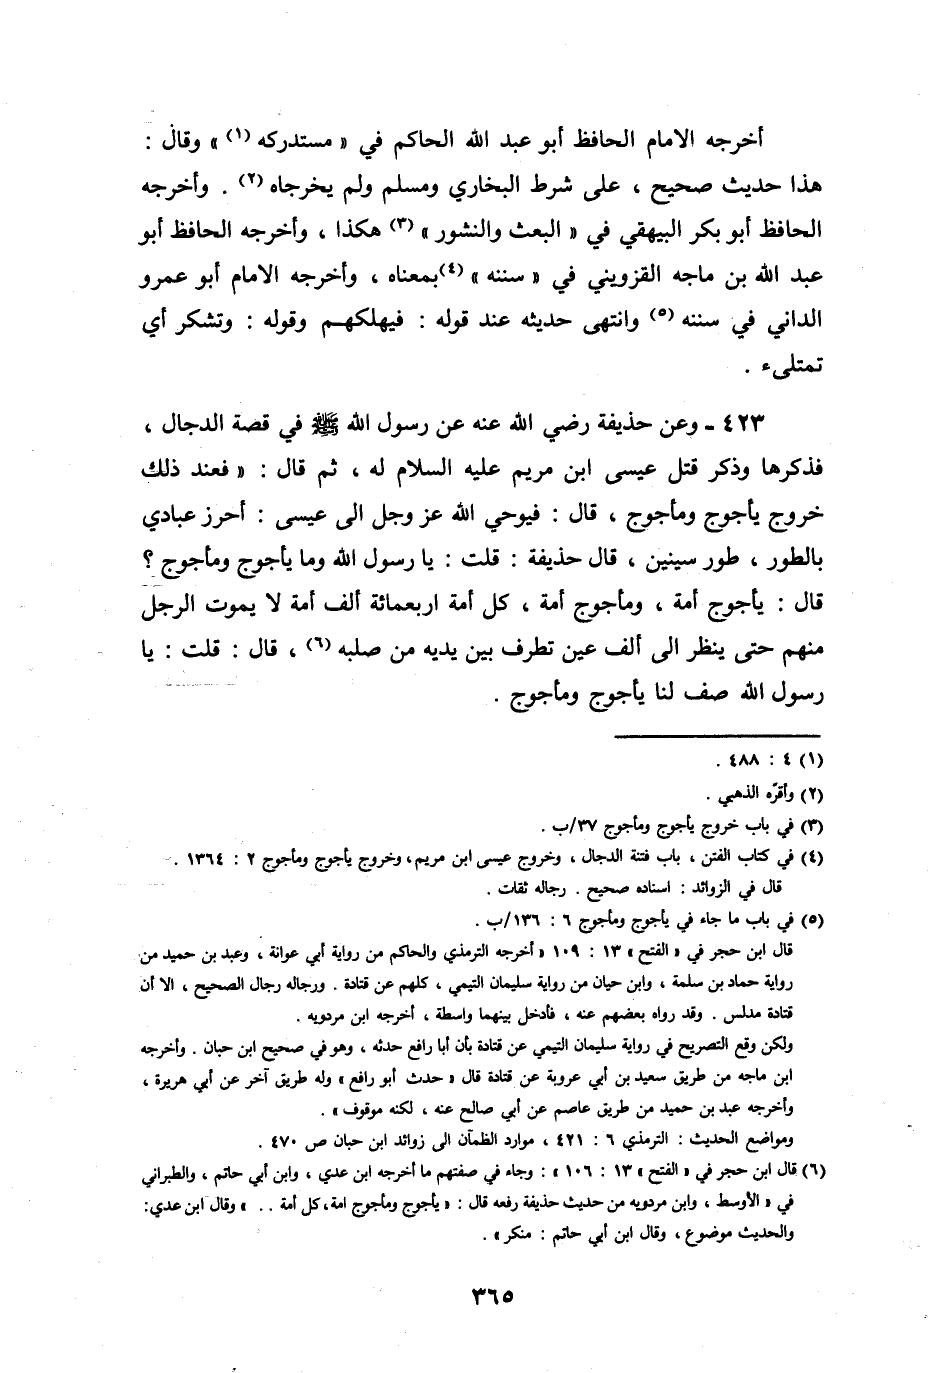 أخرجه الامام الحافظ أبو عبد الله الحاكم في « مستدركه (١) » وقال :
هذا حديث صحيح ، على شرط البخاري ومسلم ولم يخرجاه (٢) . وأخرجه
الحافظ أبو بكر البيهقي في « البعث والنشور » (٣) هكذا ، وأخرجه الحافظ أبو
عبد الله بن ماجه القزويني في « سننه » (٤)بمعناه ، وأخرجه الامام أبو عمرو
الداني في سننه (٥) وانتهى حديثه عند قوله : فيهلكهم وقوله : وتشكر أي
تمتلىء .
٤٢٣ - وعن حذيفة رضي الله عنه عن رسول الله ﷺ في قصة الدجال ،
فذكرها وذكر قتل عيسى ابن مريم عليه السلام له ، ثم قال : « فعند ذلك
خروج يأجوج ومأجوج ، قال : فيوحي الله عز وجل الى عيسى : أحرز عبادي
بالطور ، طور سينين ، قال حذيفة : قلت : يا رسول الله وما يأجوج ومأجوج ؟
قال : يأجوج أمة ، ومأجوج أمة ، كل أمة اربعمائة ألف أمة لا يموت الرجل
منهم حتى ينظر الى ألف عين تطرف بين يديه من صلبه (٦) ، قال : قلت : يا
رسول الله صف لنا يأجوج ومأجوج .
(١) ٤ : ٤٨٨ .
(٢) وأقرّه الذهبي .
(٣) في باب خروج يأجوج ومأجوج ٣٧/ب .
(٤) في كتاب الفتن ، باب فتنة الدجال ، وخروج عيسى ابن مريم، وخروج يأجوج ومأجوج ٢ : ١٣٦٤ .
قال في الزوائد : اسناده صحيح . رجاله ثقات .
(٥) في باب ما جاء في يأجوج ومأجوج ٦ : ١٣٦/ب .
قال ابن حجر في « الفتح » ١٣ : ١٠٩ « أخرجه الترمذي والحاكم من رواية أبي عوانة ، وعبد بن حميد من
رواية حماد بن سلمة ، وابن حبان من رواية سليمان التيمي ، كلهم عن قتادة . ورجاله رجال الصحيح ، الا أن
قتادة مدلس . وقد رواه بعضهم عنه ، فأدخل بينهما واسطة ، أخرجه ابن مردويه .
ولكن وقع التصريح في رواية سليمان التيمي عن قتادة بأن أبا رافع حدثه ، وهو في صحيح ابن حبان . وأخرجه
ابن ماجه من طريق سعيد بن أبي عروبة عن قتادة قال « حدث أبو رافع » وله طريق آخر عن أبي هريرة ،
وأخرجه عبد بن حميد من طريق عاصم عن أبي صالح عنه ، لكنه موقوف » .
ومواضع الحديث : الترمذي ٦ : ٤٢١ ، موارد الظمآن الى زوائد ابن حبان ص ٤٧٠ .
(٦) قال ابن حجر في « الفتح » ١٣ : ١٠٦ » : وجاء في صفتهم ما أخرجه ابن عدي ، وابن أبي حاتم ، والطبراني
في « الأوسط ، وابن مردويه من حديث حذيفة رفعه قال : « يأجوج ومأجوج امة، كل أمة . . » وقال ابن عدي:
والحديث موضوع ، وقال ابن أبي حاتم : منكر » .
٣٦٥